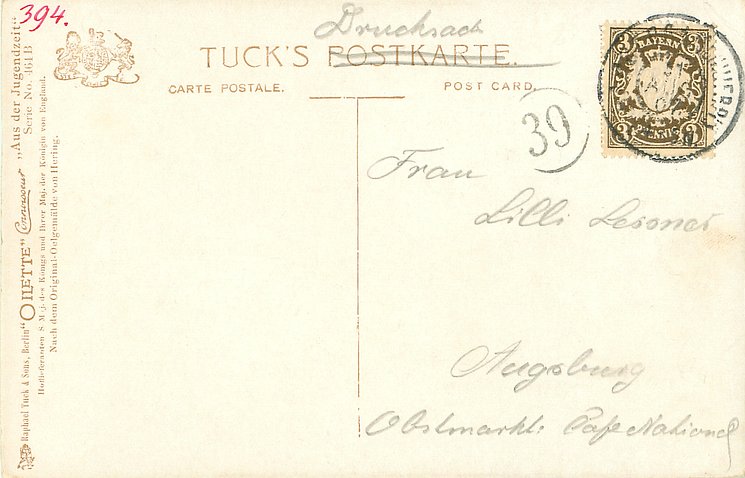 394.
Drucksach
TUCK'S POSTKARTE.
CARTE POSTALE. POST CARD.
BAYERN
3 3
3 PFENNIG 3
39
Frau
Lilli Lessner
Augsburg
Obstmarkt: Cafe National
Raphael Tuck & Sons, Berlin "OILETTE" Connoisseur „Aus der Jugendzeit"
Serie No. 464B
Hoflieferanten S. Maj. des Königs und Ihrer Maj. der Königin von England.
Nach dem Original-Oelgemälde von Hering.